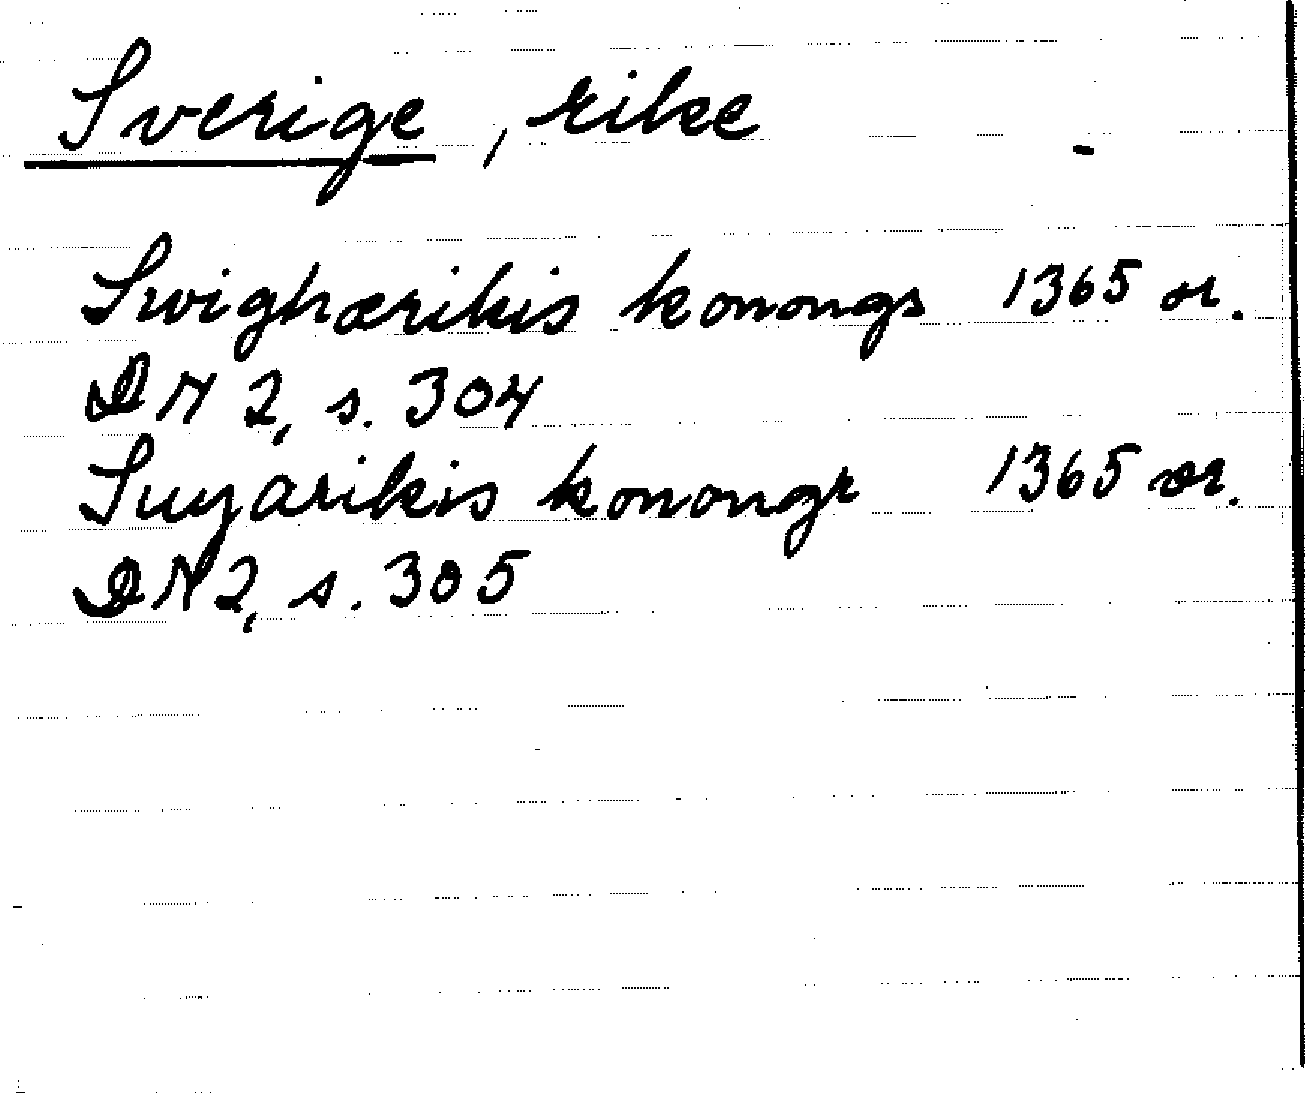 Sverige, rike
Swighærikis konongs 1365 or.
DN 2, s. 304
Suyarikis konongr 1365 or.
DN 2, s. 305